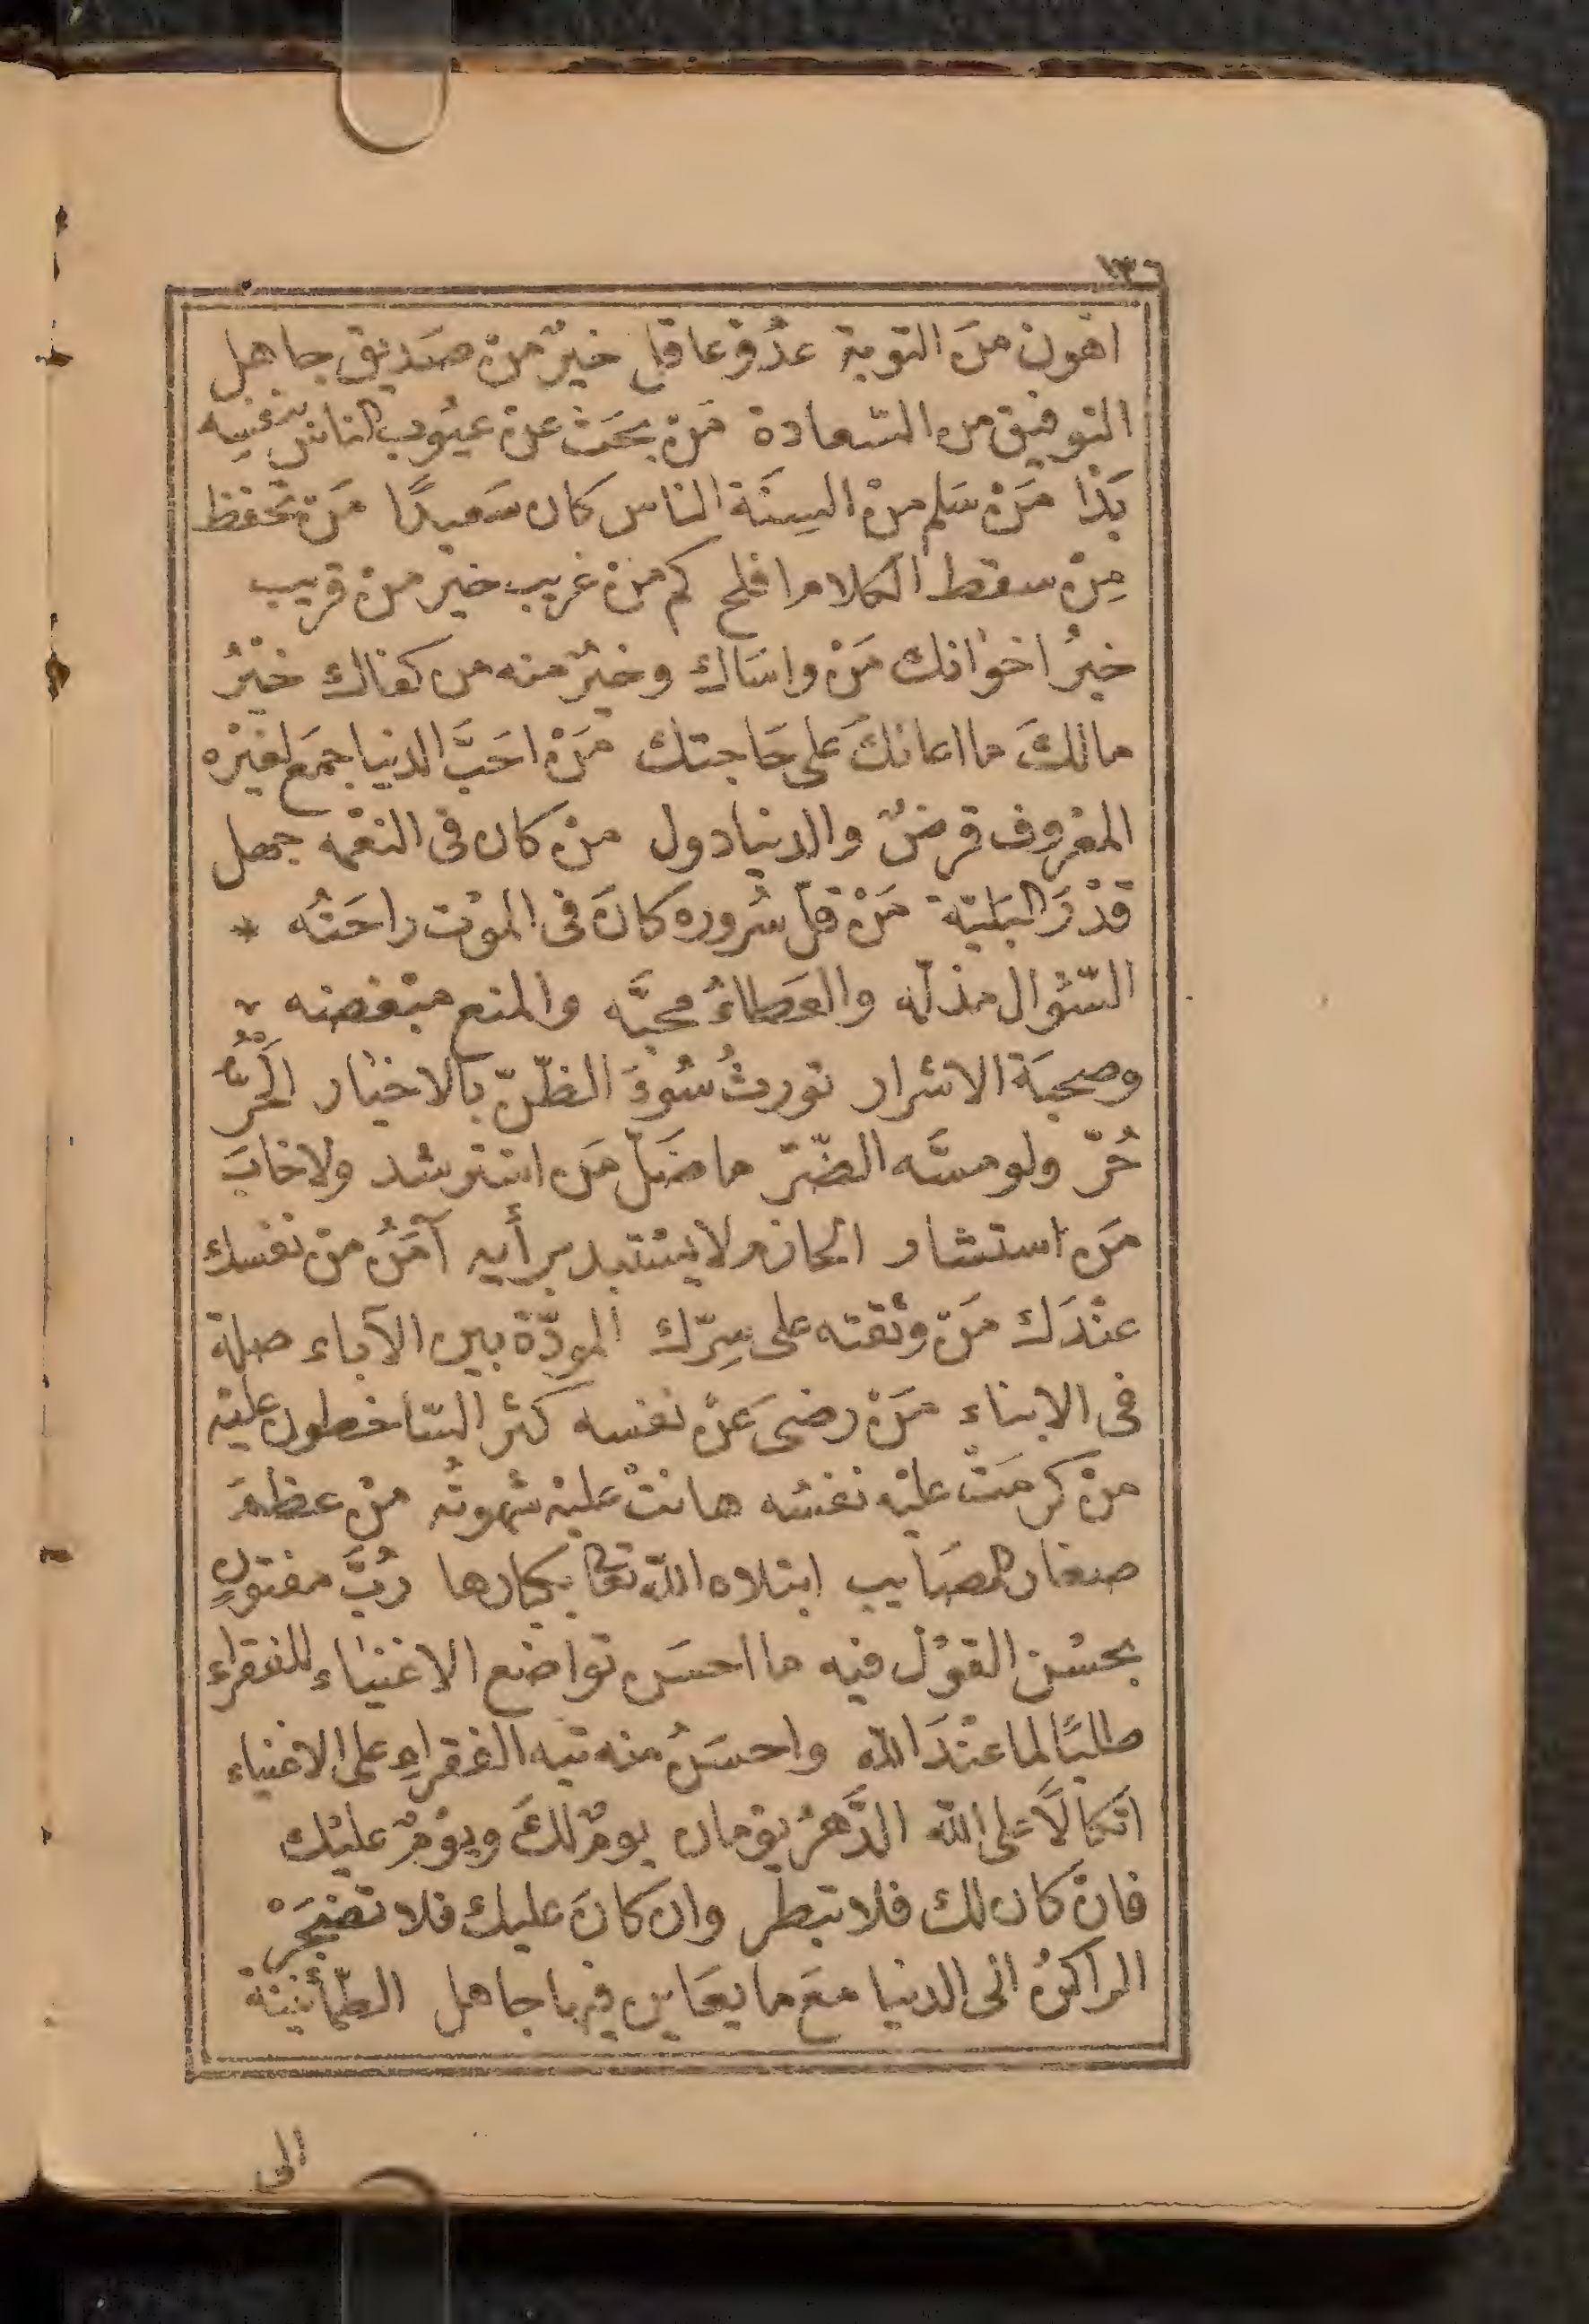 ١٣٦
اهون منَ التوبة عدُوّ عاقل خيرٌ منْ صَديق جاهل
التوفيق من السّعادة مَنْ بحَث عنْ عيُوب الناس بنفسِه
بَدَا مَنْ سَلم منْ السِنَة الناس كان سَعيدًا مَنْ تحفظ
مِنْ سقط الكلام افلح كم منْ غريب خير منْ قريب
خيرُ اخوانك مَنْ واسَاك وخيرٌ منه من كفاك خيْرُ
مالكَ ما اعانكَ على حَاجتك مَنْ احَبَّ الدنيا جمَع لغيْره
المعْروف قرضٌ والدنيا دول منْ كان فى النعْمه جهل
قدْرَ البَليّة مَنْ قلّ سُروره كانَ فى الموْت راحَتُه *
السّؤال مذلّه والعَطاءُ محبَّه والمنع مبْغضه
وصحبَة الاشرار تورثُ سُوءَ الظنّ بالاخيَار الحُرُّ
حُرّ ولو مسَّه الضّرّ ما ضَلّ مَن استرشد ولا خابَ
مَن استشار الحازم لا يسْتبد برأيه آمَنُ منْ نفسك
عنْدَك مَنْ وثقته على سِرّك المودّة بين الآباء صلة
فى الابناء مَنْ رضىَ عَنْ نفسه كثر السّاخطون عليْه
منْ كرمَتْ عليْه نفسُه هانتْ عَليْه شهوتُه منْ عظمَ
صغار المصَايب ابتلاه الله تعَا بكبارها رُبَّ مفتونٍ
بحسْن القوْل فيه ما احسَن تواضع الاغنيَاء للفقراء
طلبًا لما عنْدَ الله واحسَنُ منه تيه الفقراءِ على الاغنياء
اتكالًا على الله الدَّهرُ يوْمان يومٌ لكَ ويوْمٌ عليْك
فانْ كان لك فلا تبطر وان كانَ عليك فلا تضْجَرْ
الراكنُ الى الدنيا معَ ما يعَاين فيها جاهل الطّمأنينة
الى